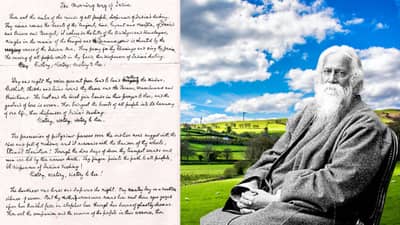 The Morning Song of India
Thou art the ruler of the minds of all people, dispenser of India's destiny.
Thy name rouses the hearts of the Punjab, Sind, Gujrat and Maratha, of Dravid
and Orissa and Bengal; it echoes in the hills of the Vindhyas and Himalayas,
mingles in the music of the and is chanted by the
waves of the Indian Sea. They pray for thy blessings and sing thy praise,
the saving of all people waits in thy hand, thou dispenser of India's destiny.
Victory, victory, victory to thee.
Day and night thy voice goes out from land to land calling the Hindus,
Buddhists, Sikhs and Jains round thy throne and the Parsees, Mussalmans and
Christians. The East and the West join hands in their prayer to thee, and the
garland of love is woven. Thou bringest the hearts of all people into the harmony
of one life, thou dispenser of India's destiny.
Victory, victory, victory to thee.
The procession of pilgrims passes over the endless road rugged with the
rise and fall of nations; and it resounds with the thunder of thy wheels,
Eternal Charioteer! Through the dire days of doom thy trumpet sounds and
men are led by thee across death. Thy finger points the path to all people,
Oh dispenser of India's destiny!
Victory, victory, victory to thee!
The darkness was dense and deep was the night. My country lay in a
silence of swoon. But thy mother arms were round her and thine eyes gazed
upon her troubled face in sleepless love through her hours of ghastly dreams.
Thou art the companion and the saviour of the people in their sorrows, thou